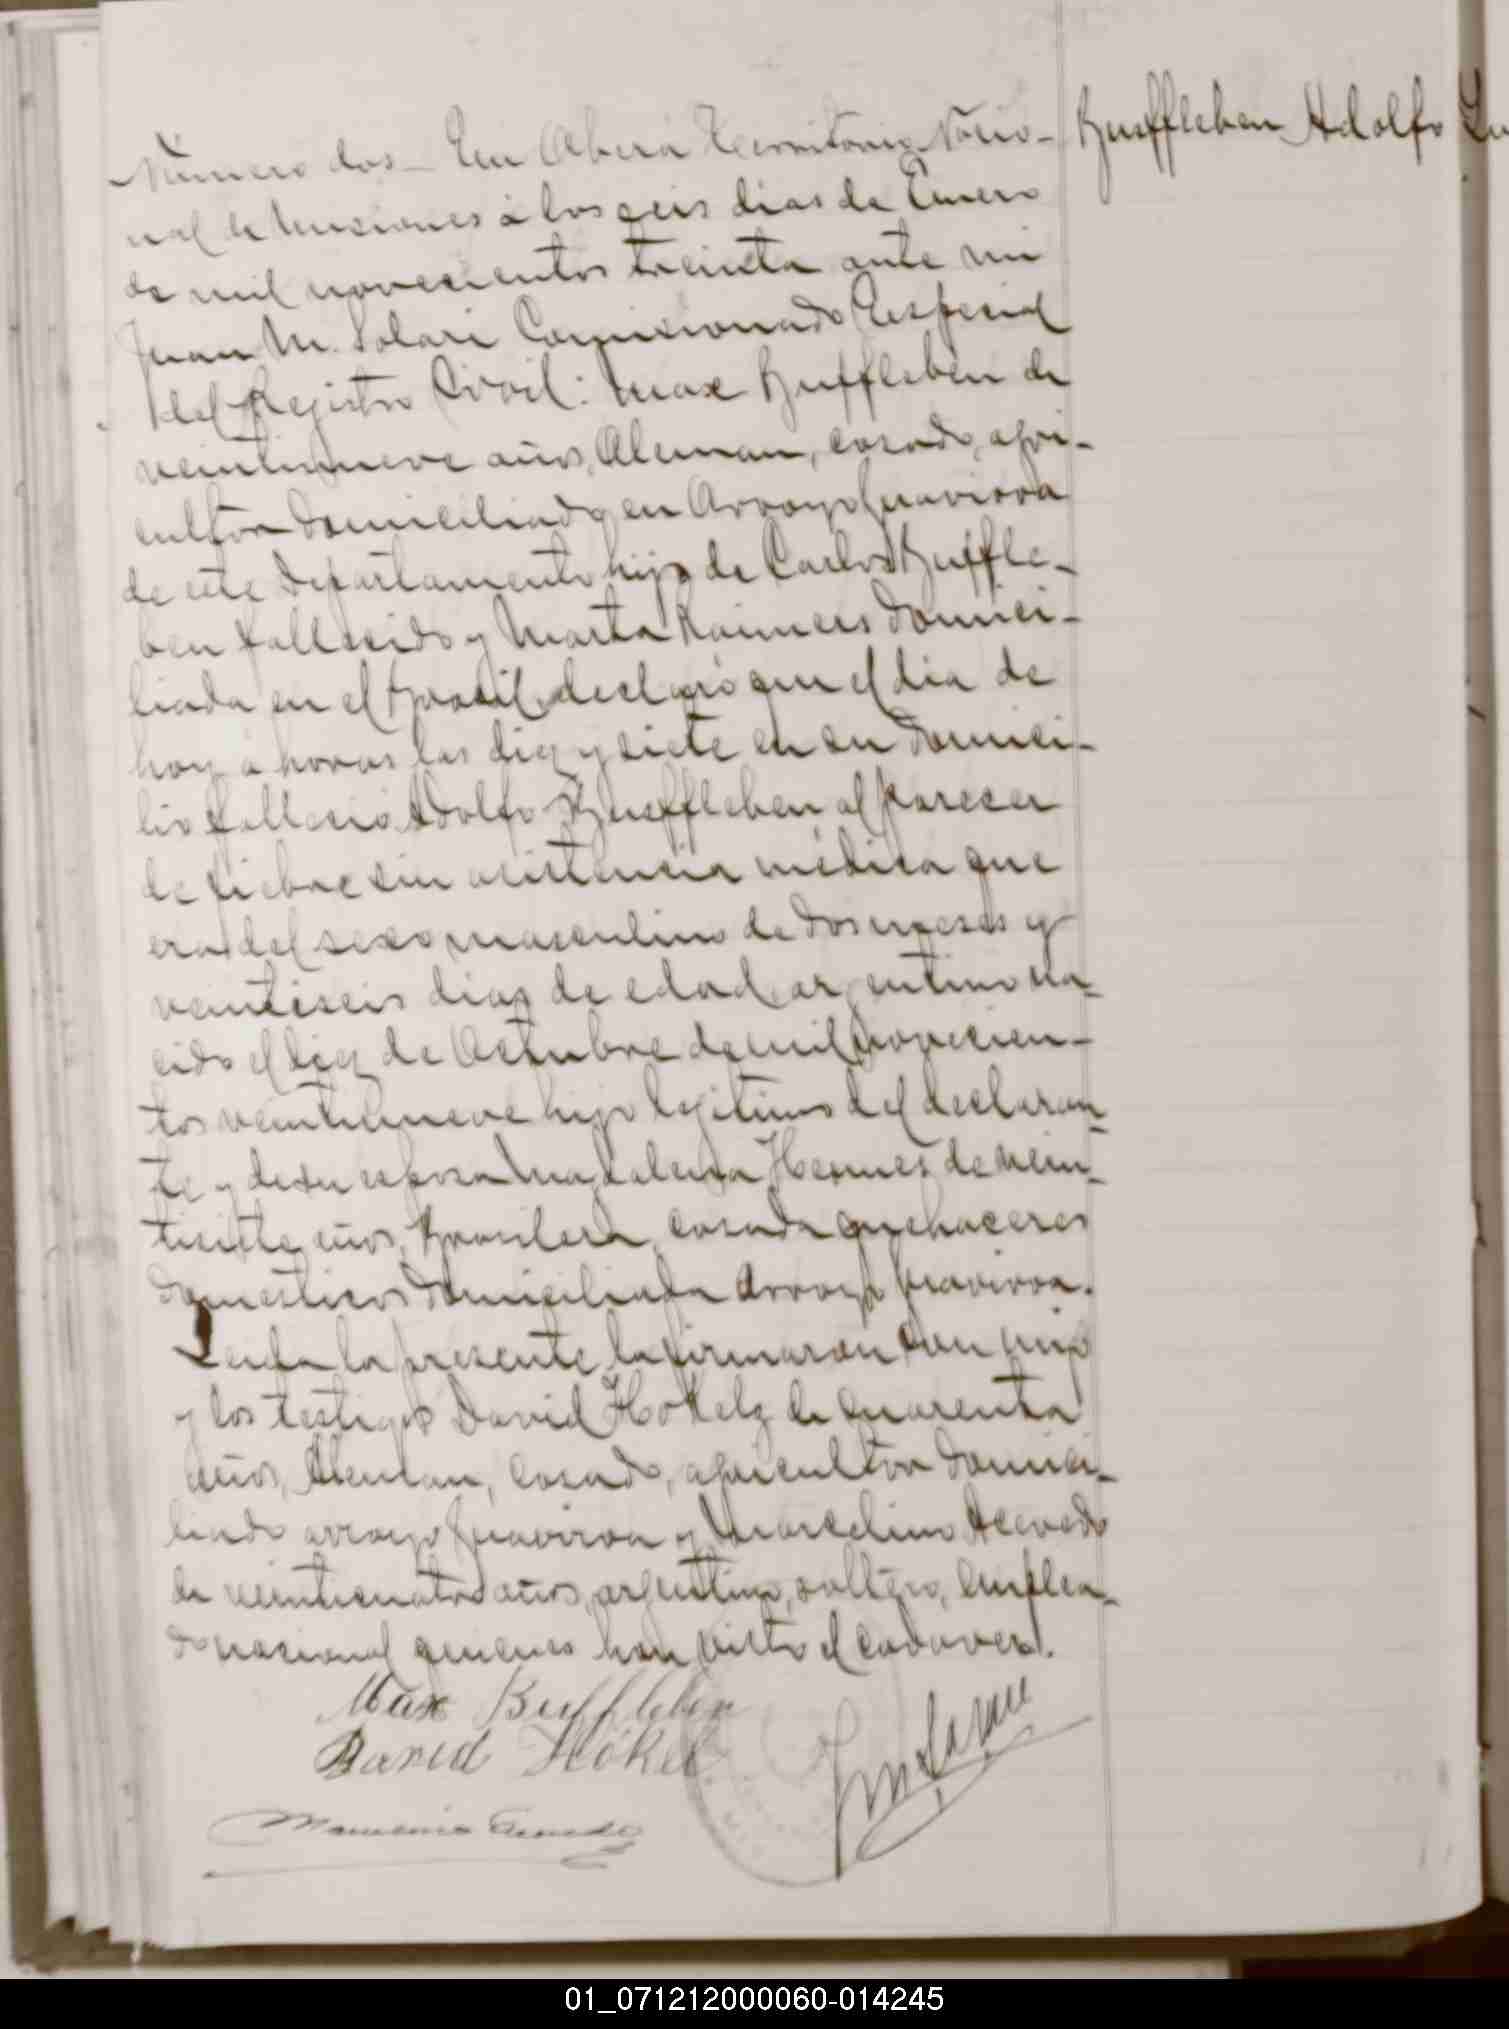 Número dos_ En Oberá Territorio Nacio-
Bueffleben Adolfo
nal de Misiones á los seis dias de Enero
de mil novecientos treinta ante mi
Juan M. Solari Comisionado Especial
del Registro Civil: Max Buffleben de
veintinueve años, Aleman, casado, agri-
cultor domiciliado en Arroyo Guavirova
de este Departamento hijo de Carlos Buffle-
ben fallecido y Marta Raimers domici-
liada en el Brasil, declaró que el dia de
hoy á horas las diez y siete en su domici-
lio falleció Adolfo Bueffleben al parecer
de fiebre sin asistencia médica que
era del sexo masculino de dos meses y
veintiseis dias de edad argentino na-
cido el diez de Octubre de mil novecien-
tos veintinueve hijo legitimo del declaran-
te y de su esposa Magdalena Hermes de vein-
tisiete años, Brasilera, casada quehaceres
domesticos domiciliada Arroyo Guavirova.
Leida la presente la firmaron con migo
y los testigos David Hokelz de cuarenta
años, Aleman, casado, agricultor domici-
liado arroyo Guavirova y Marcelino Acevedo
de veinticuatro años, argentino, soltero, emplea-
do nacional quienes han visto el cadaver.
Max Buffleben
David Hökel
Marcelino Acevedo
01_071212000060-014245